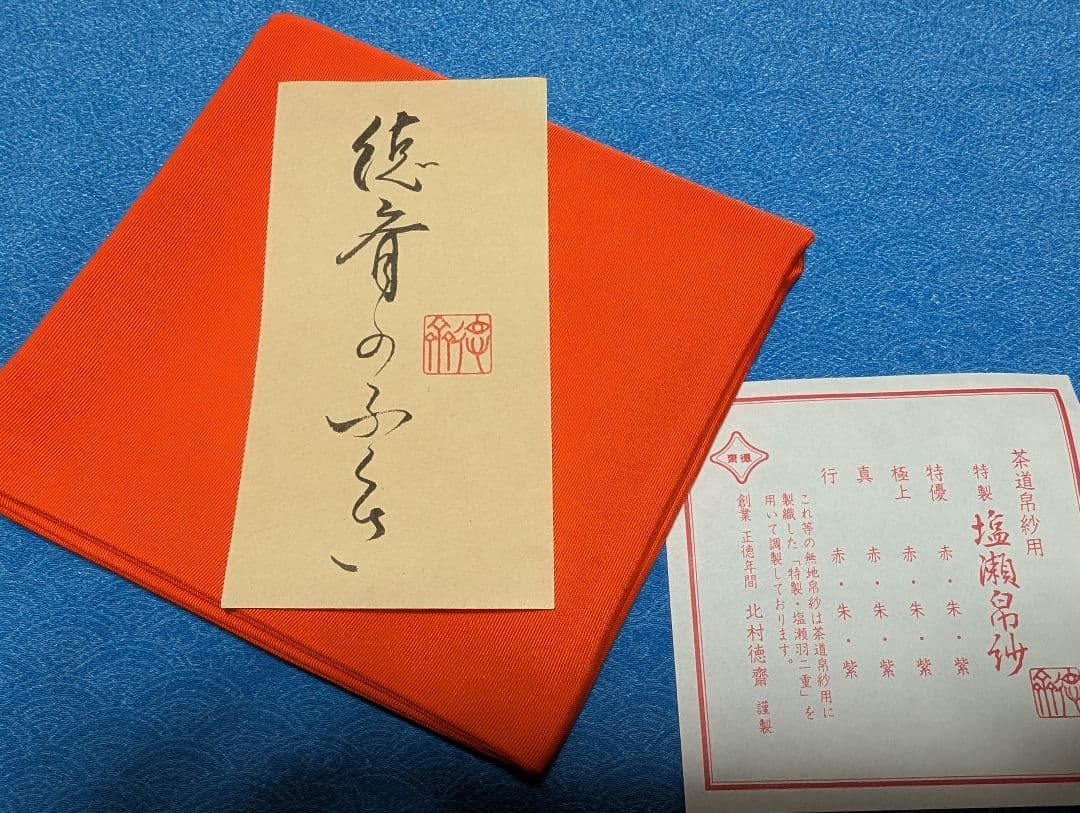 徳斎のふくさ
徳斎
茶道帛紗用
特製 塩瀬帛紗
特優 赤・朱・紫
極上 赤・朱・紫
真 赤・朱・紫
行 赤・朱・紫
これ等の無地帛紗は茶道帛紗用に
製織した「特製・塩瀬羽二重」を
用いて調製しております。
創業 正徳年間 北村徳齋 謹製
徳齋
徳斎